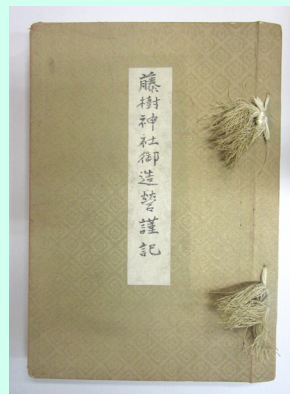 藤樹神社御造營謹記